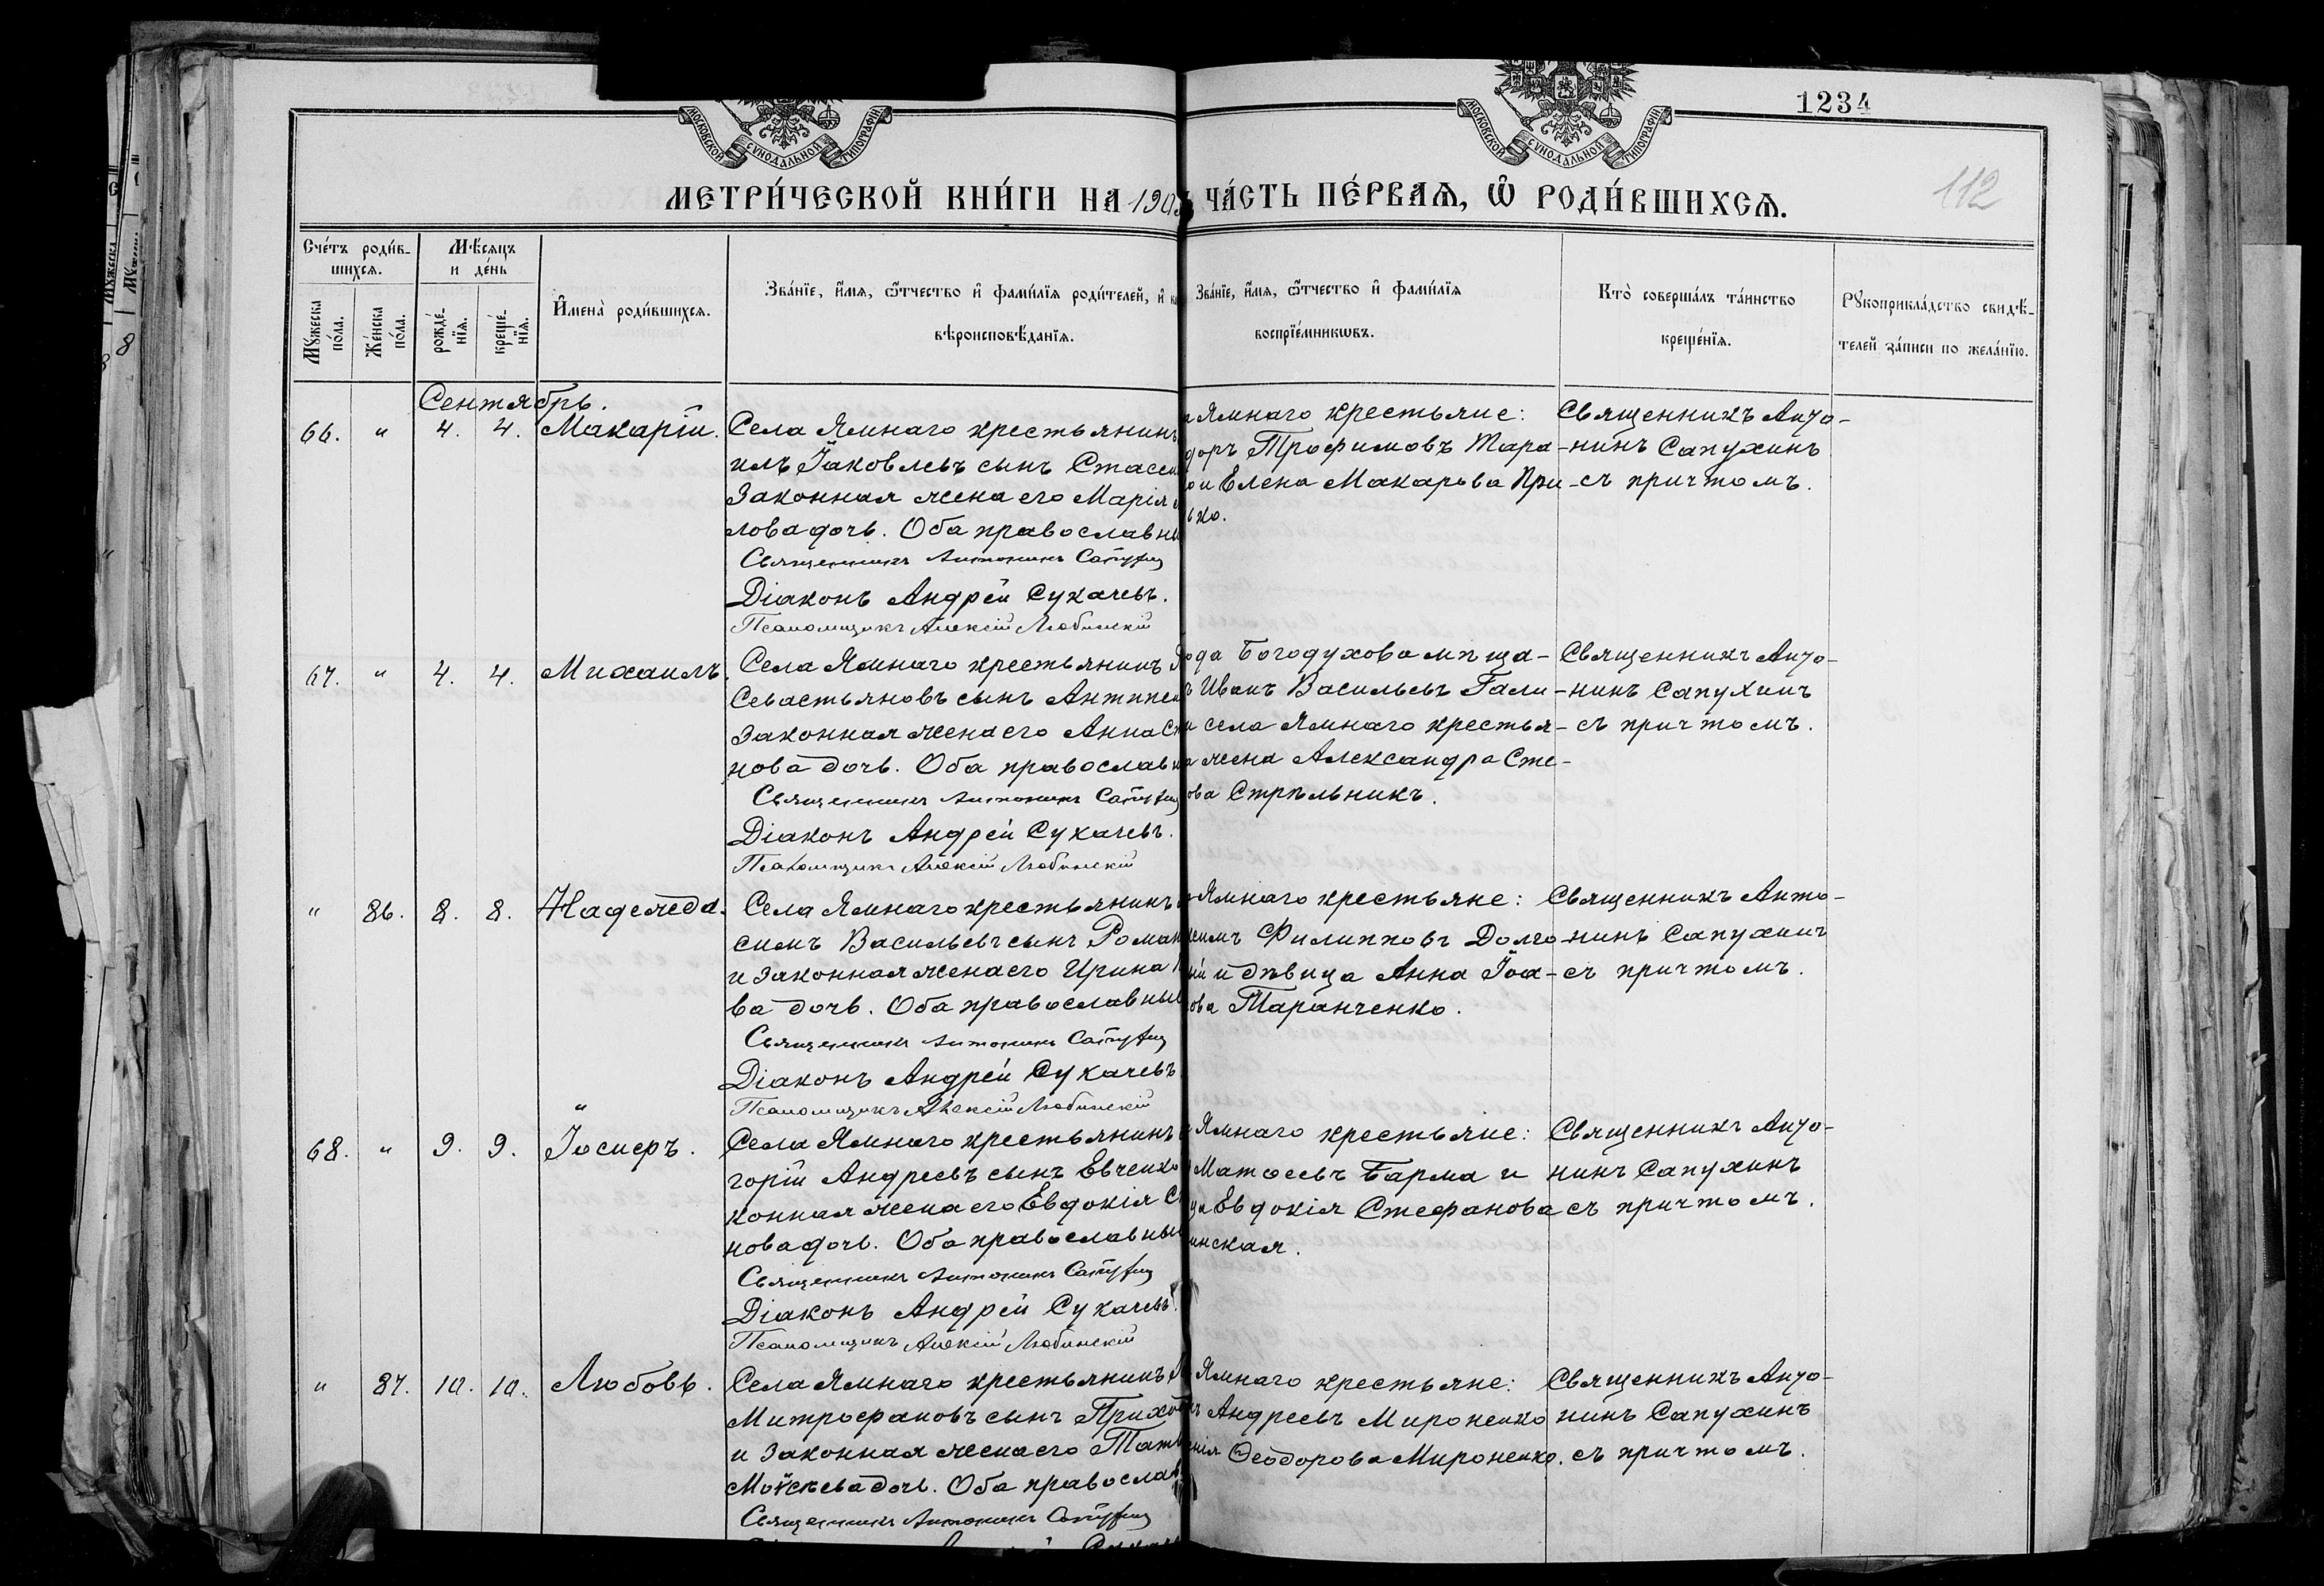 1234
112
МОСКОВСКОЙ СѴНОДАЛЬНОЙ ТИПОГРАФІИ.
МОСКОВСКОЙ СѴНОДАЛЬНОЙ ТИПОГРАФІИ.
МЕТРИ́ЧЕСКОЙ КНИ́ГИ НА 190
ЧА́СТЬ ПЕ́РВАѦ, Ѿ РОДИ́ВШИХСѦ.
Сче́тъ роди́в-
шихсѧ.
Мѣ́сѧцъ
и де́нь
Мꙋ́жеска
по́ла.
Же́нска
по́ла.
рожде́-
нїѧ.
креще́-
нїѧ.
И҆мена̀ роди́вшихсѧ.
Зва́нїе, и҆́мѧ, ѻ҆́тчество и҆ фами́лїѧ роди́телей, и҆
вѣроисповѣ́данїѧ.
Зва́нїе, и҆́мѧ, ѻ҆́тчество и҆ фами́лїѧ
воспрїе́мникѡвъ.
Кто̀ соверша́лъ та́инство
креще́нїѧ.
Рꙋкоприкла́дство свидѣ́-
телей за́писи по жела́нїю.
Сентябрь.
66. " 4. 4. Макарій.
Села Ямнаго крестьянинъ
илъ Іаковлевъ сынъ
Законная жена его Марія
лова дочь. Оба православн
Священникъ Антонинъ Сапухин
Діаконъ Андрей Сукачевъ.
Псаломщикъ Алексій Любинскій
Ямнаго крестьяне:
доръ Трофимовъ Тара-
и Елена Макарова При-
ько.
Священникъ Анто-
нинъ Сапухинъ
съ причтомъ.
67. " 4. 4. Михаилъ.
Села Ямнаго крестьянинъ
Севастьяновъ сынъ
Законная жена его Анна
нова дочь. Оба православн
Священникъ Антонинъ Сапухин
Діаконъ Андрей Сукачевъ.
Псаломщикъ Алексій Любинскій
ода Богодухова мѣща-
Иванъ Васильевъ Гали-
и села Ямнаго крестья-
жена Александра Сте-
ова Стрѣльникъ.
Священникъ Анто-
нинъ Сапухинъ
съ причтомъ.
" 86. 8. 8. Надежда.
Села Ямнаго крестьянинъ
симъ Васильевъ сынъ Роман
и законная жена его Ирина
ва дочь. Оба православные
Священникъ Антонинъ Сапухин
Діаконъ Андрей Сукачевъ
Псаломщикъ Алексій Любинскій
Ямнаго крестьяне:
симъ Филипповъ Долго-
ій и дѣвица Анна Іоа-
ова Таранченко.
Священникъ Анто-
нинъ Сапухинъ
съ причтомъ.
68. " 9. 9. Іосифъ.
Села Ямнаго крестьянинъ
горій Андреевъ сынъ Евченко
конная жена его Евдокія
нова дочь. Оба православные
Священникъ Антонинъ Сапухин
Діаконъ Андрей Сукачевъ.
Псаломщикъ Алексій Любинскій
Ямнаго крестьяне:
Матѳеевъ Барма и
Евдокія Стефанова
инская.
Священникъ Анто-
нинъ Сапухинъ
съ причтомъ.
" 87. 10. 10. Любовь.
Села Ямнаго крестьянинъ
Митрофановъ сынъ Приход
и законная жена его Тать
Моѵсѣева дочь. Оба православ
Священникъ Антонинъ Сапухин
Ямнаго крестьяне:
Андреевъ Мироненко
нія Ѳеодорова Мироненко.
Священникъ Анто-
нинъ Сапухинъ
съ причтомъ.